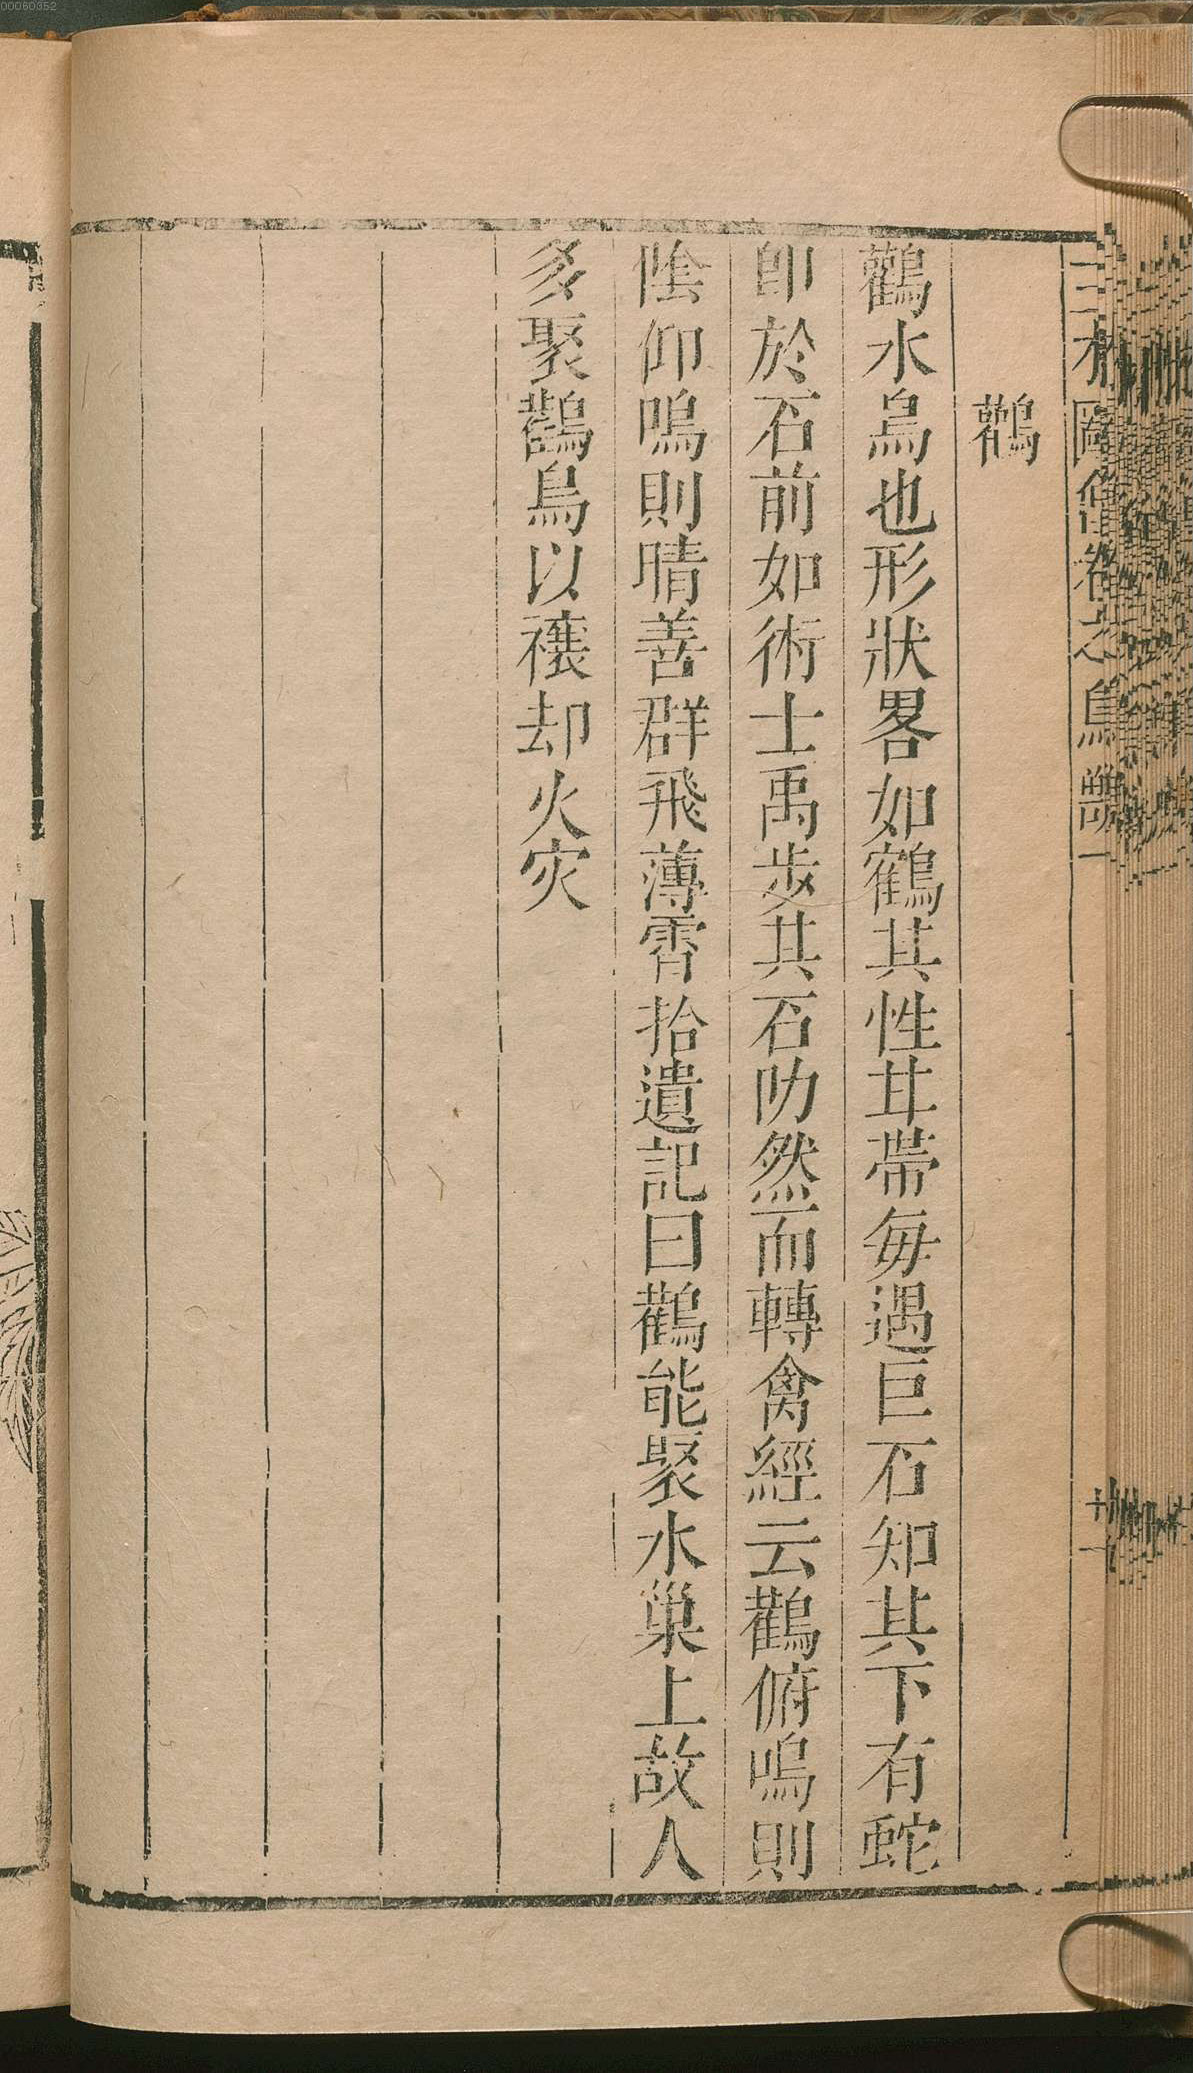 00060352
三才圖會卷之鳥獸一
十九
鸛
鸛水鳥也形狀畧如鶴其性甘帶毎遇巨石知其下有蛇
即於石前如術士禹歩其石叻然而轉禽經云鸛俯鳴則
陰仰鳴則晴善群飛薄霄拾遺記曰鸛能聚水巢上故人
多聚鸛鳥以禳却火灾